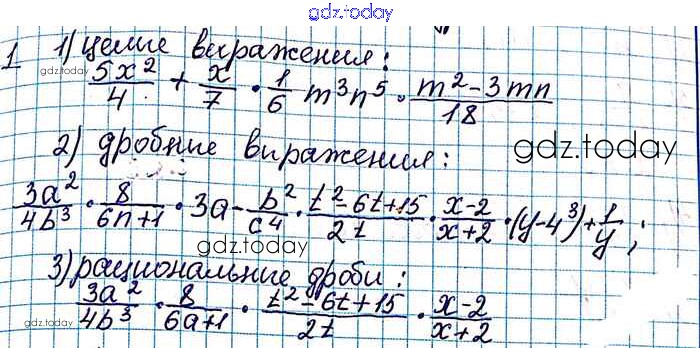 gdz.today
1 1) целые выражения:
gdz.today
5x²/4 + x/7 · 1/6 m³n⁵ · (m² - 3mn)/18
2) дробные выражения:
gdz.today
3a²/4b³ · 8/(6n+1) · 3a - b²/c⁴ · (t² - 6t + 15)/2t · (x-2)/(x+2) · (y-4³) + 1/y;
gdz.today
3) рациональные дроби:
3a²/4b³ · 8/(6a+1) · (t² - 6t + 15)/2t · (x-2)/(x+2)
gdz.today